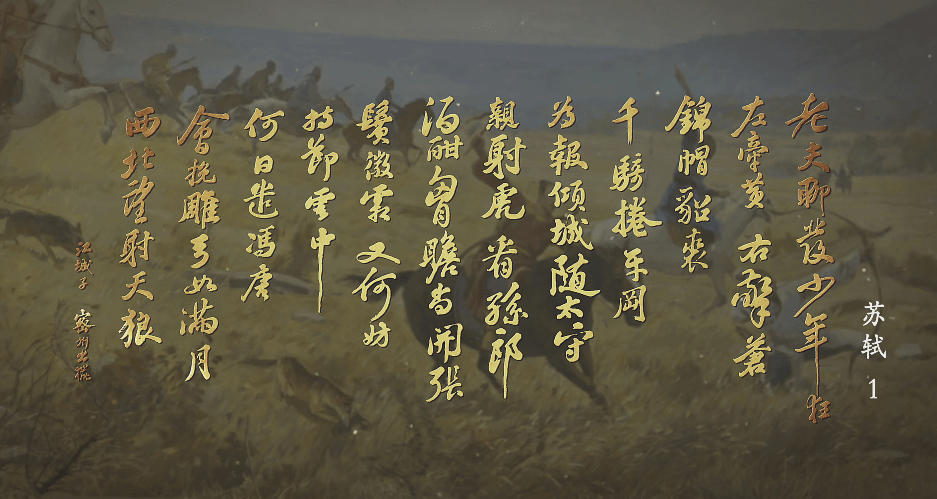 苏轼 1
老夫聊發少年狂
左牽黄 右擎蒼
錦帽貂裘
千騎捲平岡
為報倾城随太守
親射虎 看孫郎
酒酣胷膽尚開張
鬢微霜 又何妨
持節雲中
何日遣馮唐
會挽雕弓如滿月
西北望射天狼
江城子 密州出獵